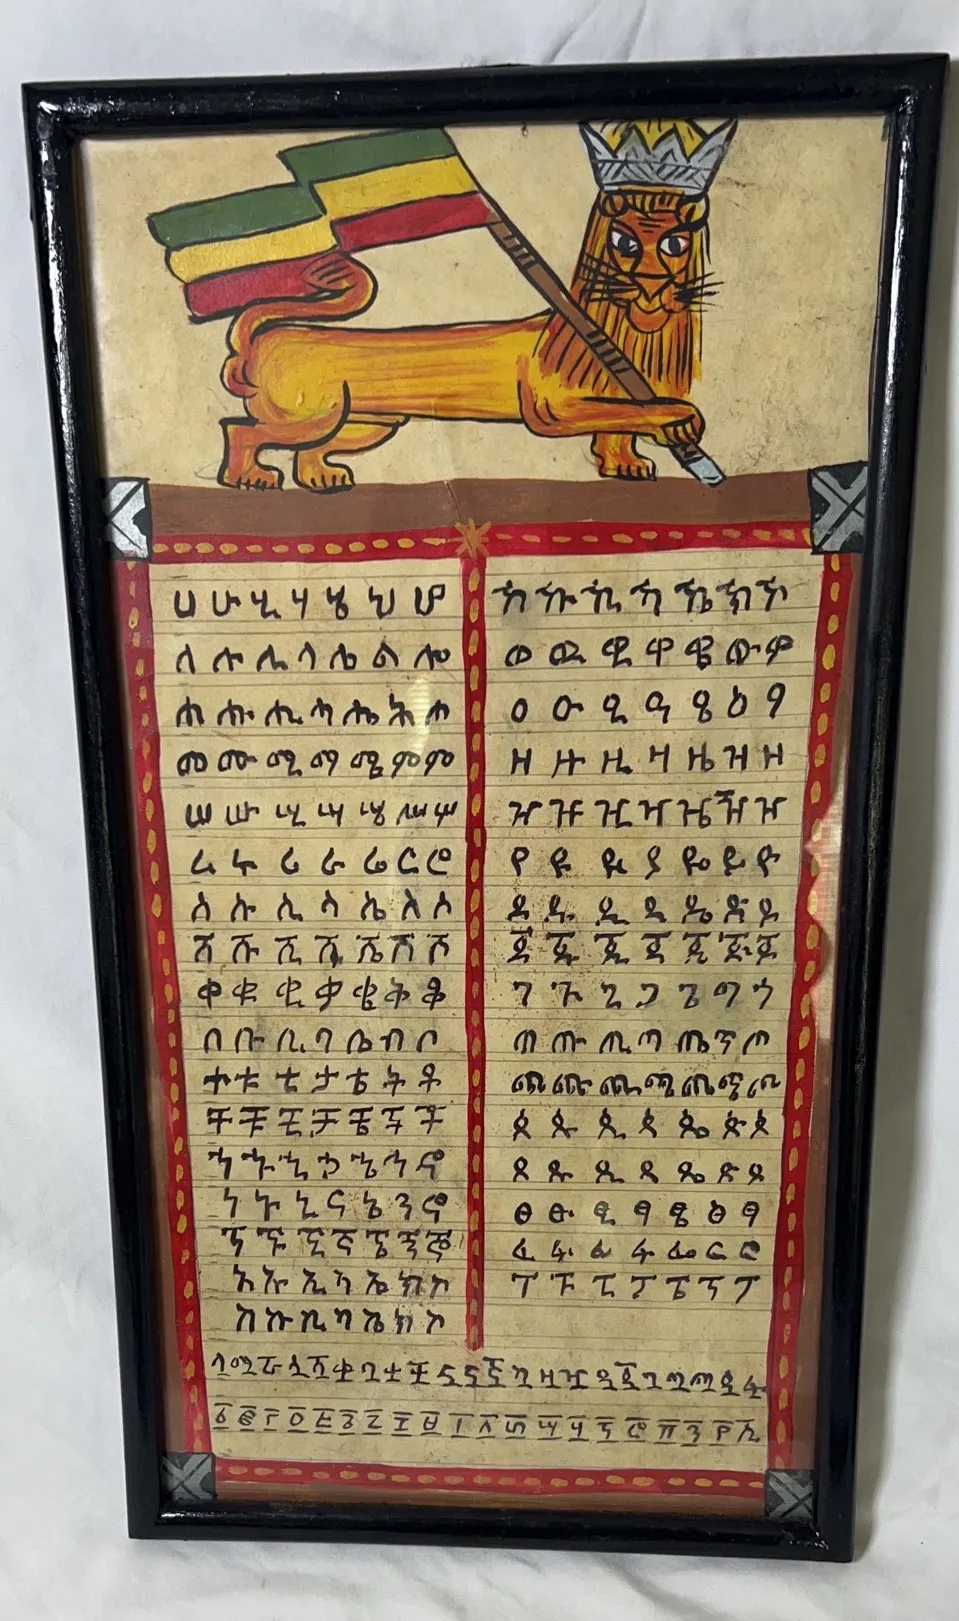 ሀ ሁ ሂ ሃ ሄ ህ ሆ
ለ ሉ ሊ ላ ሌ ል ሎ
ሐ ሑ ሒ ሓ ሔ ሕ ሖ
መ ሙ ሚ ማ ሜ ም ሞ
ሠ ሡ ሢ ሣ ሤ ሥ ሦ
ረ ሩ ሪ ራ ሬ ር ሮ
ሰ ሱ ሲ ሳ ሴ ስ ሶ
ሸ ሹ ሺ ሻ ሼ ሽ ሾ
ቀ ቁ ቂ ቃ ቄ ቅ ቆ
በ ቡ ቢ ባ ቤ ብ ቦ
ተ ቱ ቲ ታ ቴ ት ቶ
ቸ ቹ ቺ ቻ ቼ ች ቾ
ኀ ኁ ኂ ኃ ኄ ኅ ኆ
ነ ኑ ኒ ና ኔ ን ኖ
ኘ ኙ ኚ ኛ ኜ ኝ ኞ
አ ኡ ኢ ኣ ኤ እ ኦ
ከ ኩ ኪ ካ ኬ ክ ኮ
ኸ ኹ ኺ ኻ ኼ ኽ ኾ
ወ ዉ ዊ ዋ ዌ ው ዎ
ዐ ዑ ዒ ዓ ዔ ዕ ዖ
ዘ ዙ ዚ ዛ ዜ ዝ ዞ
ዠ ዡ ዢ ዣ ዤ ዥ ዦ
የ ዩ ዪ ያ ዬ ይ ዮ
ደ ዱ ዲ ዳ ዴ ድ ዶ
ጀ ጁ ጂ ጃ ጄ ጅ ጆ
ገ ጉ ጊ ጋ ጌ ግ ጎ
ጠ ጡ ጢ ጣ ጤ ጥ ጦ
ጨ ጩ ጪ ጫ ጬ ጭ ጮ
ጰ ጱ ጲ ጳ ጴ ጵ ጶ
ጸ ጹ ጺ ጻ ጼ ጽ ጾ
ፀ ፁ ፂ ፃ ፄ ፅ ፆ
ፈ ፉ ፊ ፋ ፌ ፍ ፎ
ፐ ፑ ፒ ፓ ፔ ፕ ፖ
ሏ ሟ ሯ ሷ ሿ ቋ ቧ ቷ ቿ ኗ ኟ ኳ ዟ ዧ ዷ ጇ ጓ ጧ ጯ ጿ ፏ
፩ ፪ ፫ ፬ ፭ ፮ ፯ ፰ ፱ ፲ ፳ ፴ ፵ ፶ ፷ ፸ ፹ ፺ ፻ ፼